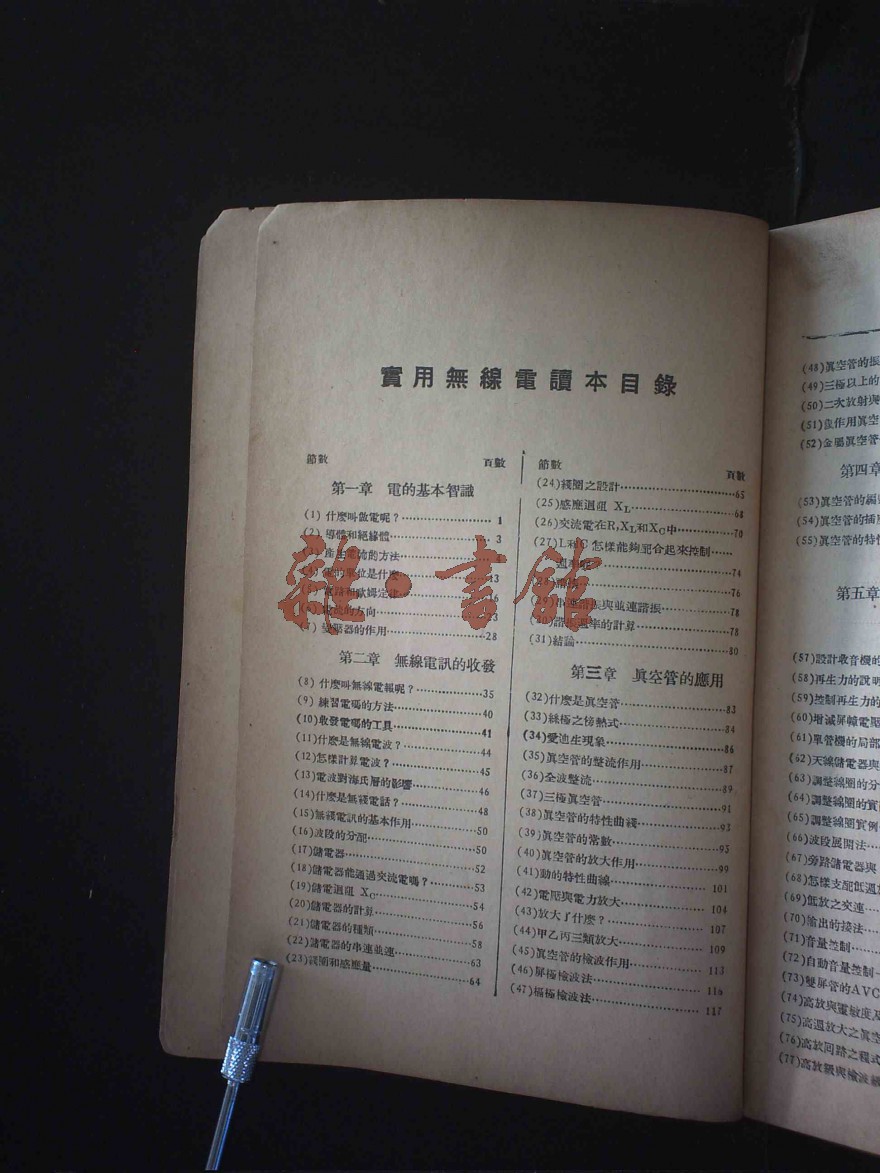 實用無線電讀本目錄
節數 頁數
第一章 電的基本智識
(1) 什麼叫做電呢？ 1
(2) 導體和絕緣體 3
產生電流的方法 4
單位是什麼 13
歐姆定律 16
的方向 23
(7) 變壓器的作用 28
第二章 無線電訊的收發
(8) 什麼叫無線電報呢？ 35
(9) 練習電碼的方法 40
(10)收發電碼的工具 41
(11)什麼是無線電波？ 44
(12)怎樣計算電波？ 45
(13)電波對海氏層的影響 46
(14)什麼是無綫電話？ 48
(15)無綫電訊的基本作用 50
(16)波段的分配 50
(17)儲電器 52
(18)儲電器能通過交流電嗎？ 53
(19)儲電週阻 XC 54
(20)儲電器的計算 56
(21)儲電器的種類 58
(22)儲電器的串連並連 63
(23)綫圈和感應量 64
節數 頁數
(24)綫圈之設計 65
(25)感應週阻 XL 68
(26)交流電在R,XL和XC中 70
(27)L和C 怎樣能夠配合起來控制
週率呢 74
76
(29)串連諧振與並連諧振 78
(30)諧振週率的計算 78
(31)結論 80
第三章 眞空管的應用
(32)什麼是眞空管 83
(33)絲極之傍熱式 84
(34)愛迪生現象 86
(35)眞空管的整流作用 87
(36)全波整流 89
(37)三極眞空管 91
(38)眞空管的特性曲綫 93
(39)眞空管的常數 95
(40)眞空管的放大作用 99
(41)動的特性曲線 101
(42)電壓與電力放大 104
(43)放大了什麼？ 107
(44)甲乙丙三類放大 109
(45)眞空管的檢波作用 113
(46)屏極檢波法
(47)柵極檢波法 117
(48)眞空管的振
(49)三極以上的
(50)二次放射與
(51)復作用眞空
(52)金屬眞空管
第四章
(53)眞空管的編
(54)眞空管的插
(55)眞空管的特性
第五章
(57)設計收音機的
(58)再生力的說明
(59)控制再生力的
(60)增減屏幛電壓
(61)單管機的局部
(62)天綫儲電器與
(63)調整線圈的分
(64)調整綫圈的實
(65)調整綫圈實例
(66)波段展開法
(67)旁路儲電器與
(68)怎樣支配低週放
(69)低放之交連
(70)輸出的接法
(71)音量控制
(72)自動音量控制
(73)雙屏管的AVC
(74)高放與靈敏度及
(75)高週放大之眞空
(76)高放回路之程式
(77)高放級與檢波級
雜·書館